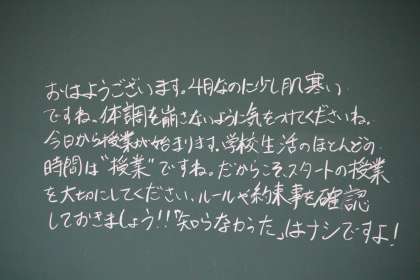 おはようございます。4月なのに少し肌寒い
ですね。体調を崩さないように気をつけてくださいね。
今日から授業が始まります。学校生活のほとんどの
時間は"授業"ですね。だからこそ、スタートの授業
を大切にしてください。ルールや約束事を確認
しておきましょう!!「知らなかった」はナシですよ!